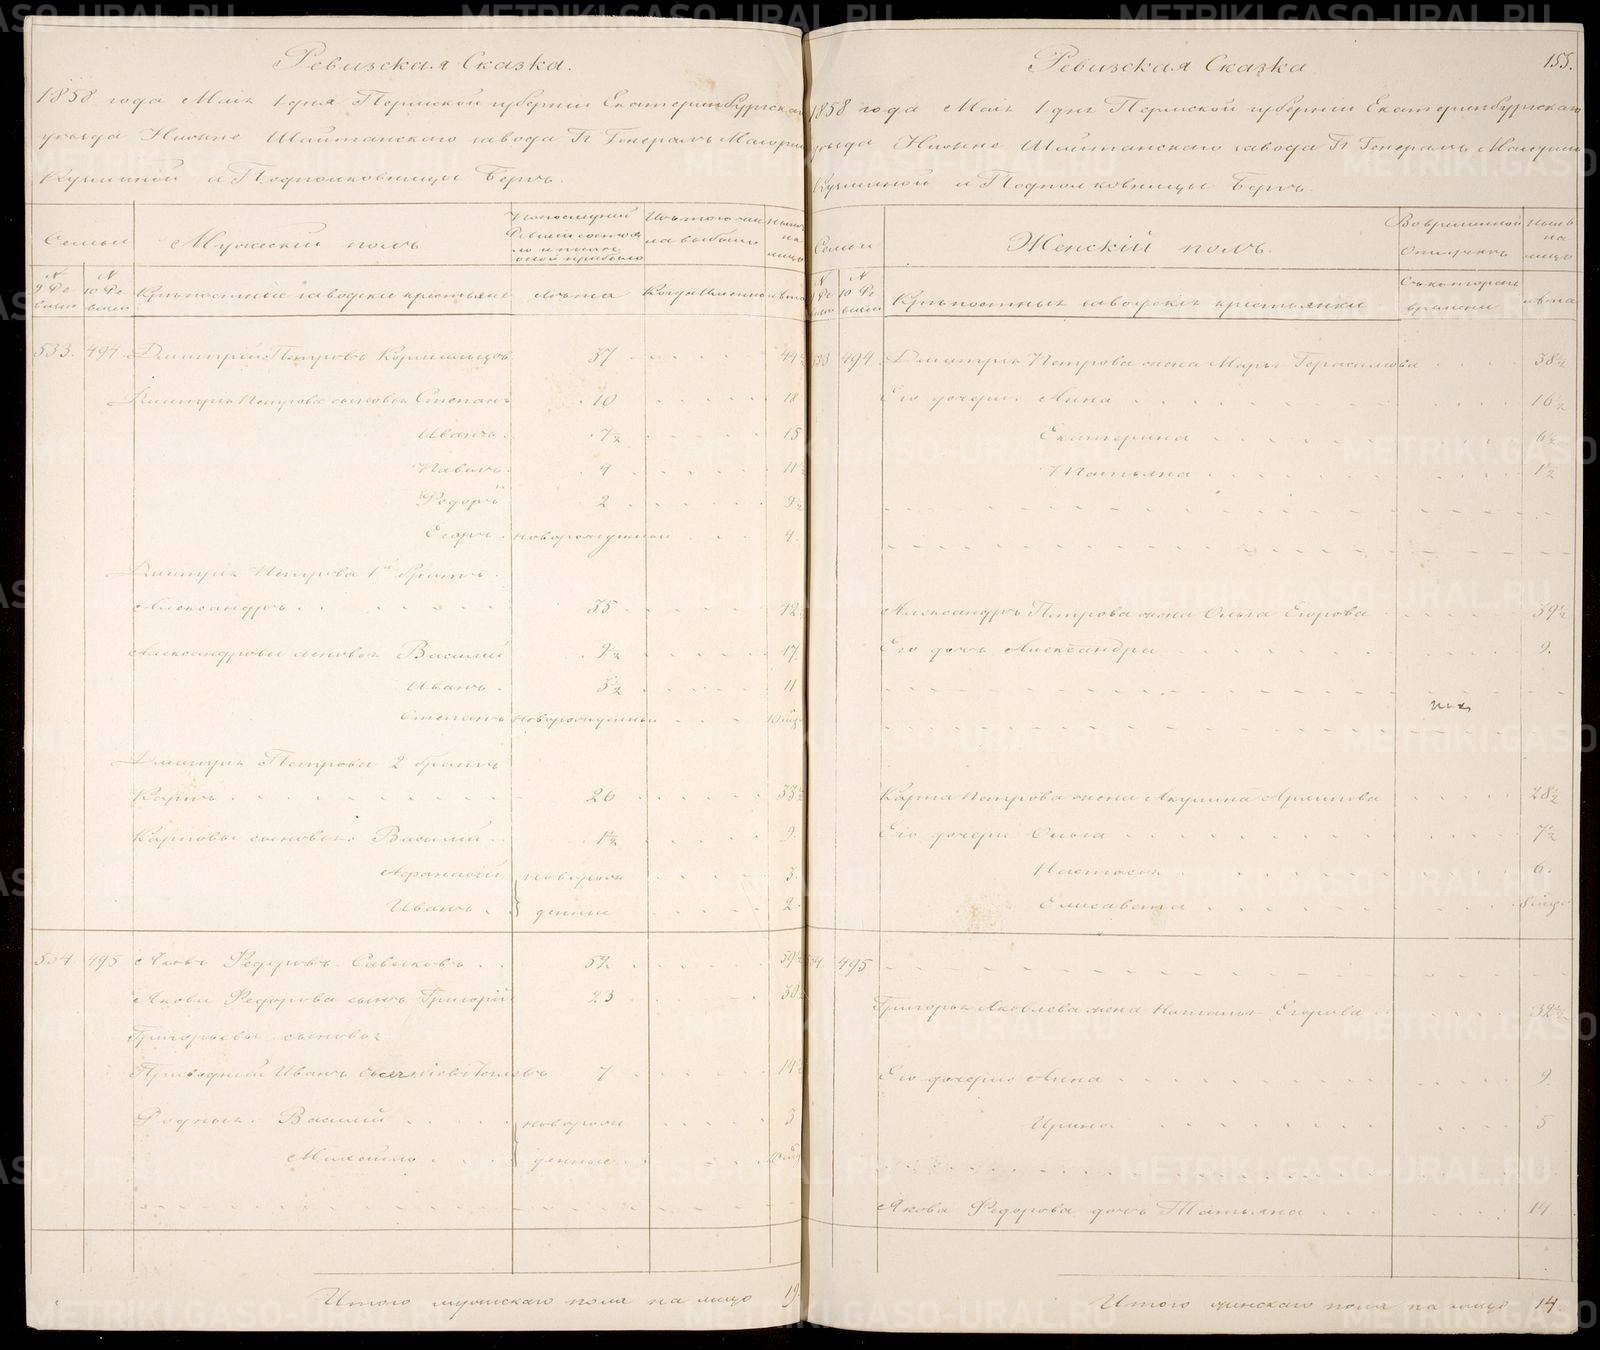 Ревизская Сказка.
1858 года Маія 1 дня Пермской губернии Екатеринбургскаго
уѣзда Нижне Шайтанскаго завода Гг Генералъ Маіорши
Кузминой и Подполковницы Бергъ.
Семьи
Мужескій полъ
По последней Ревизіи состояло и после оной прибыло
Изъ того числа выбыло
Ныне на лицо
№ 9 Ревизіи
№ 10 Ревизіи
Крѣпостные заводскіе крестьяне
лѣта
Когда именно
лѣта
533. 494. Дмитрій Петровъ Кормильцовъ 37 44½
Дмитрія Петрова сыновья Степанъ 10 18
Иванъ. 7½ 15
Павелъ. 4 11½
Федоръ 2 9½
Егоръ. новорожденный 4.
Дмитрія Петрова 1й братъ
Александръ 35 42½
Александровы сыновья Василий 9½ 17.
Иванъ. 3½ 11
Степанъ новорожденный 10 мѣс.
Дмитрія Петрова 2 братъ
Карпъ 26 33½
Карповы сыновья: Василий 1½ 9.
Афанасій новорож 3.
Иванъ. денные 2.
534 495 Яковъ Федоровъ Савелковъ 52 59½
Якова Федорова сынъ Григорій 23 30½
Григорьевы сыновья
Приводный Иванъ 7 14½
Родныя. Василий новорож 3
Михайло денные
Итого мужскаго пола на лицо 19.
155.
Ревизская Сказка
1858 года Маія 1 дня Пермской губернии Екатеринбургскаго
уѣзда Нижне Шайтанскаго завода Гг Генералъ Маіорши
Кузминой и Подполковницы Бергъ.
Семьи
Женскій полъ.
Во временной отлучкѣ
Ныне на лицо
№ 9 Ревизіи
№ 10 Ревизіи
Крѣпостныя заводскія крестьянки
Съ котораго времени
лѣта
533 494 Дмитрія Петрова жена Марья Герасимова 38½
Его дочери: Анна 16½
Екатерина 6½
Татьяна 1½
Александръ Петрова жена Ольга Егорова 39½
Его дочь Александра 9.
Карпа Петрова жена Акулина Архипова 28½
Его дочери Ольга 7½
Настасья 6.
Елисавета 8 мѣс.
534. 495
Григорья Яковлева жена Наталья Егорова 32½
Его дочери Анна 9
Ирина 5
Якова Федорова дочь Татьяна 14
Итого женскаго пола на лицо 14
METRIKI.GASO-URAL.RU